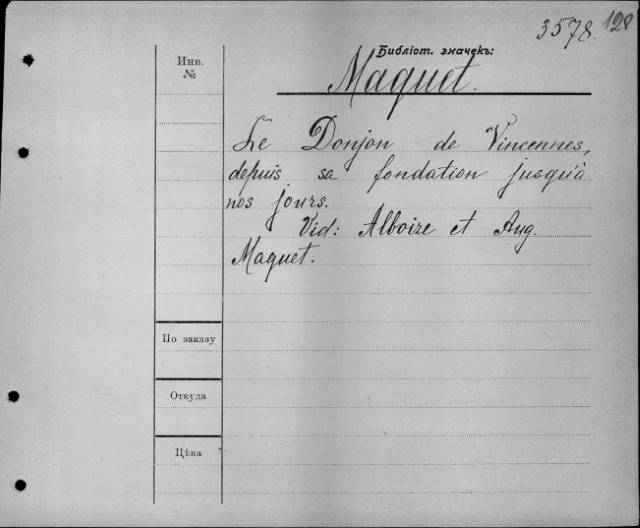 3578. 128
Инв.
№
Библіот. значекъ:
Maquet.
Le Donjon de Vincennes,
depuis sa fondation jusqu'à
nos jours.
Vid: Alboize et Aug.
Maquet.
По заказу
Откуда
Цѣна